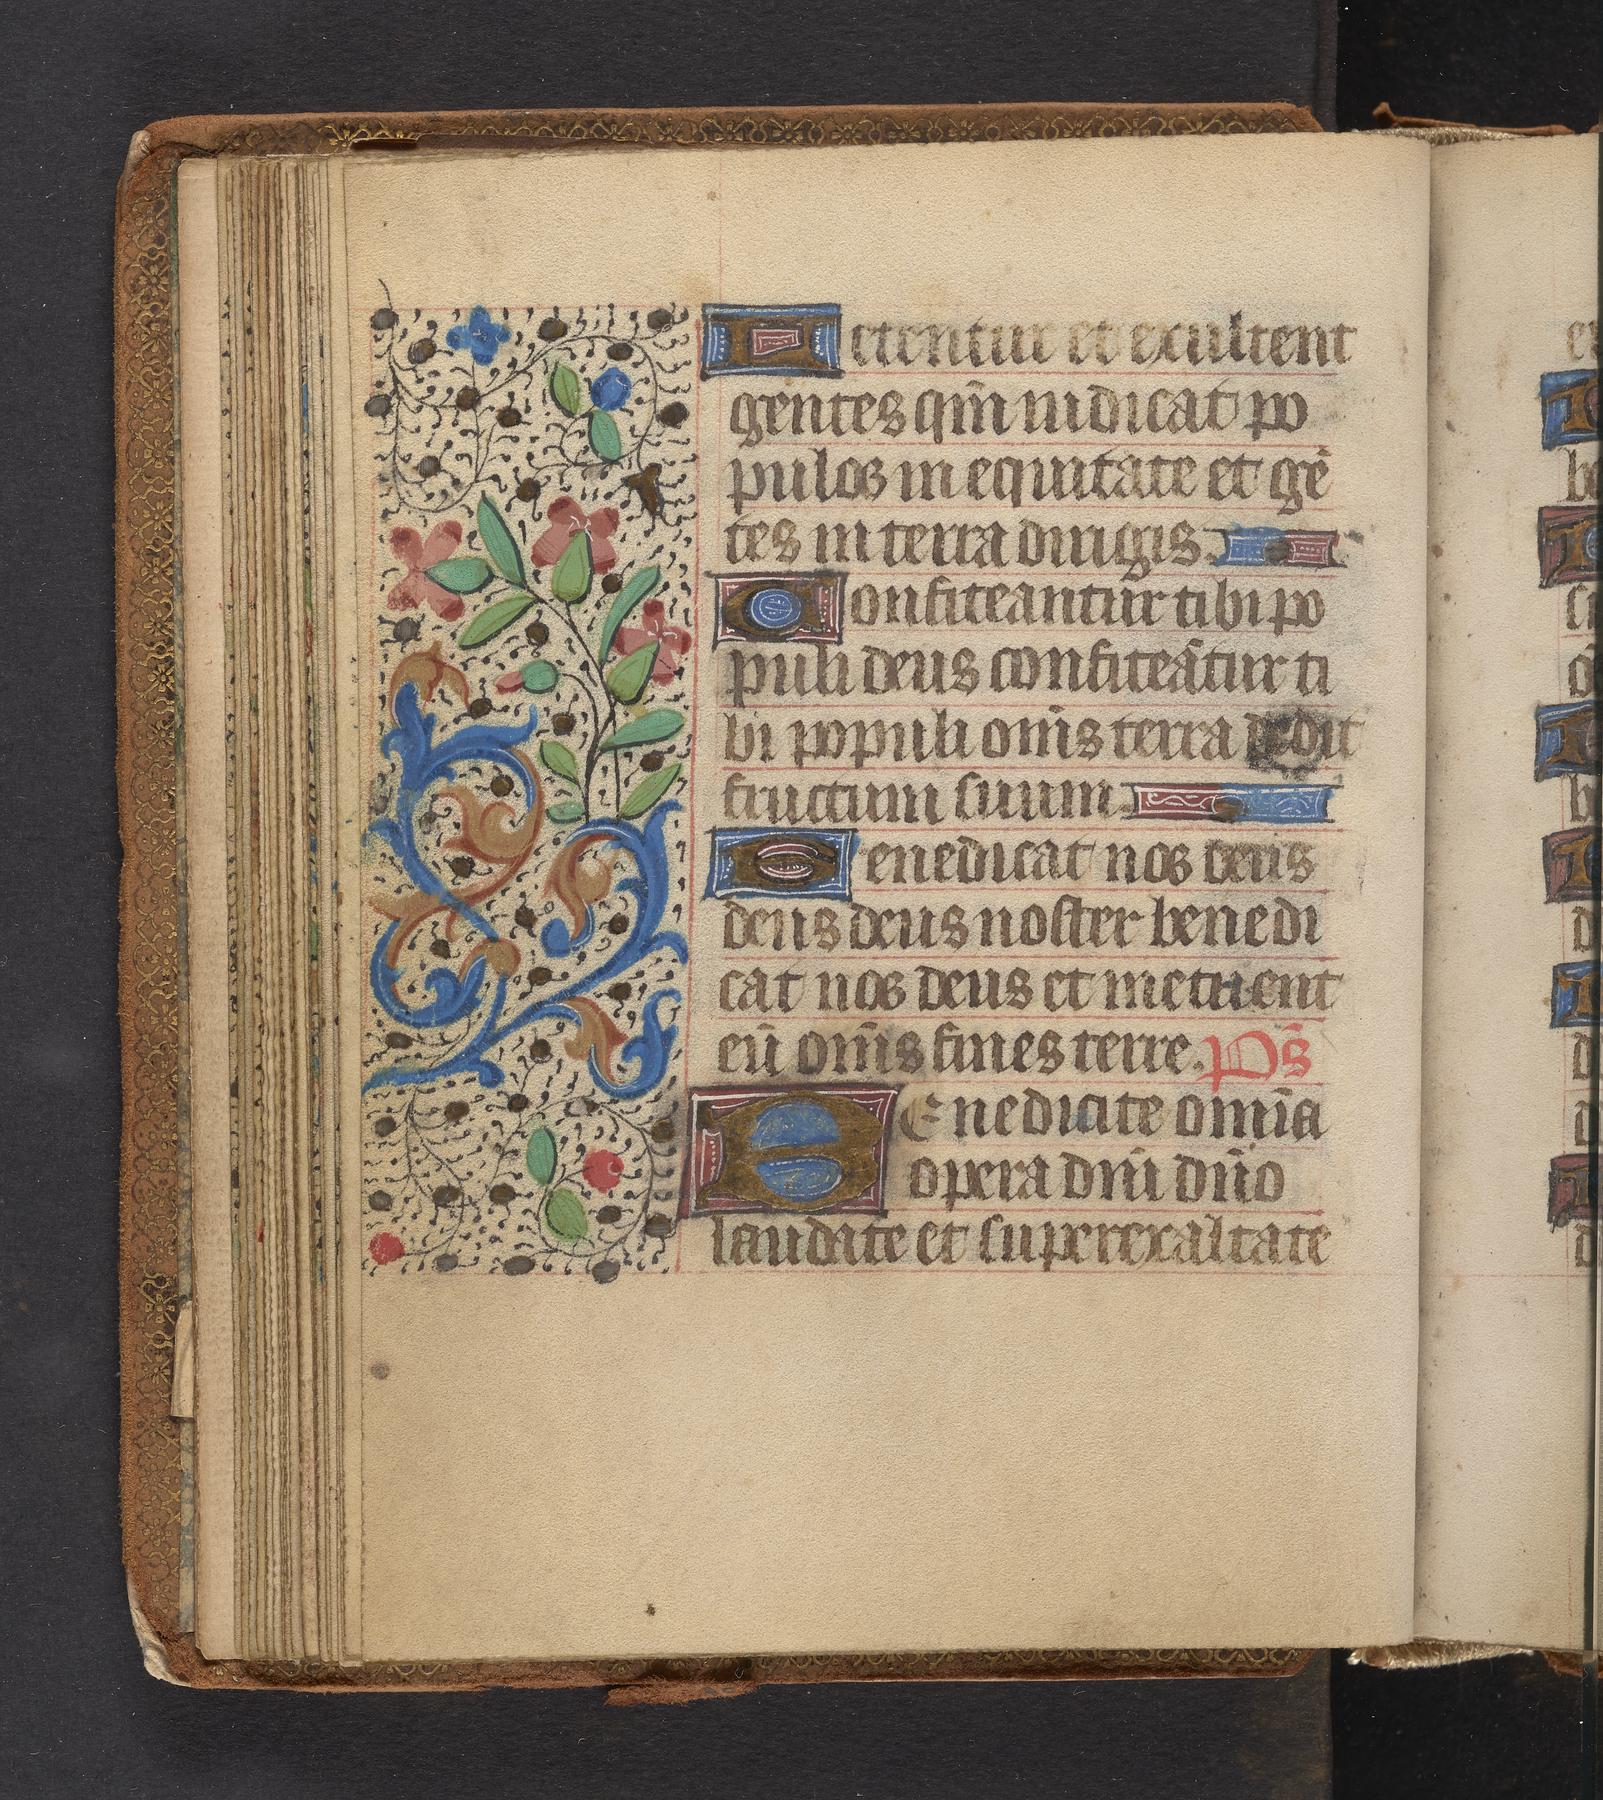 Letentur et exultent
gentes qm̄ iudicat po
pulos in equitate et gē
tes in terra dirigis.
Confiteantur tibi po
puli deus confiteātur ti
bi populi om̄s terra dedit
fructum suum.
Benedicat nos deus
deus deus noster benedi
cat nos deus et metuent
eū om̄s fines terre. Ps̄
BEnedicite om̄ia
opera dn̄i dn̄o
laudate et superexaltate